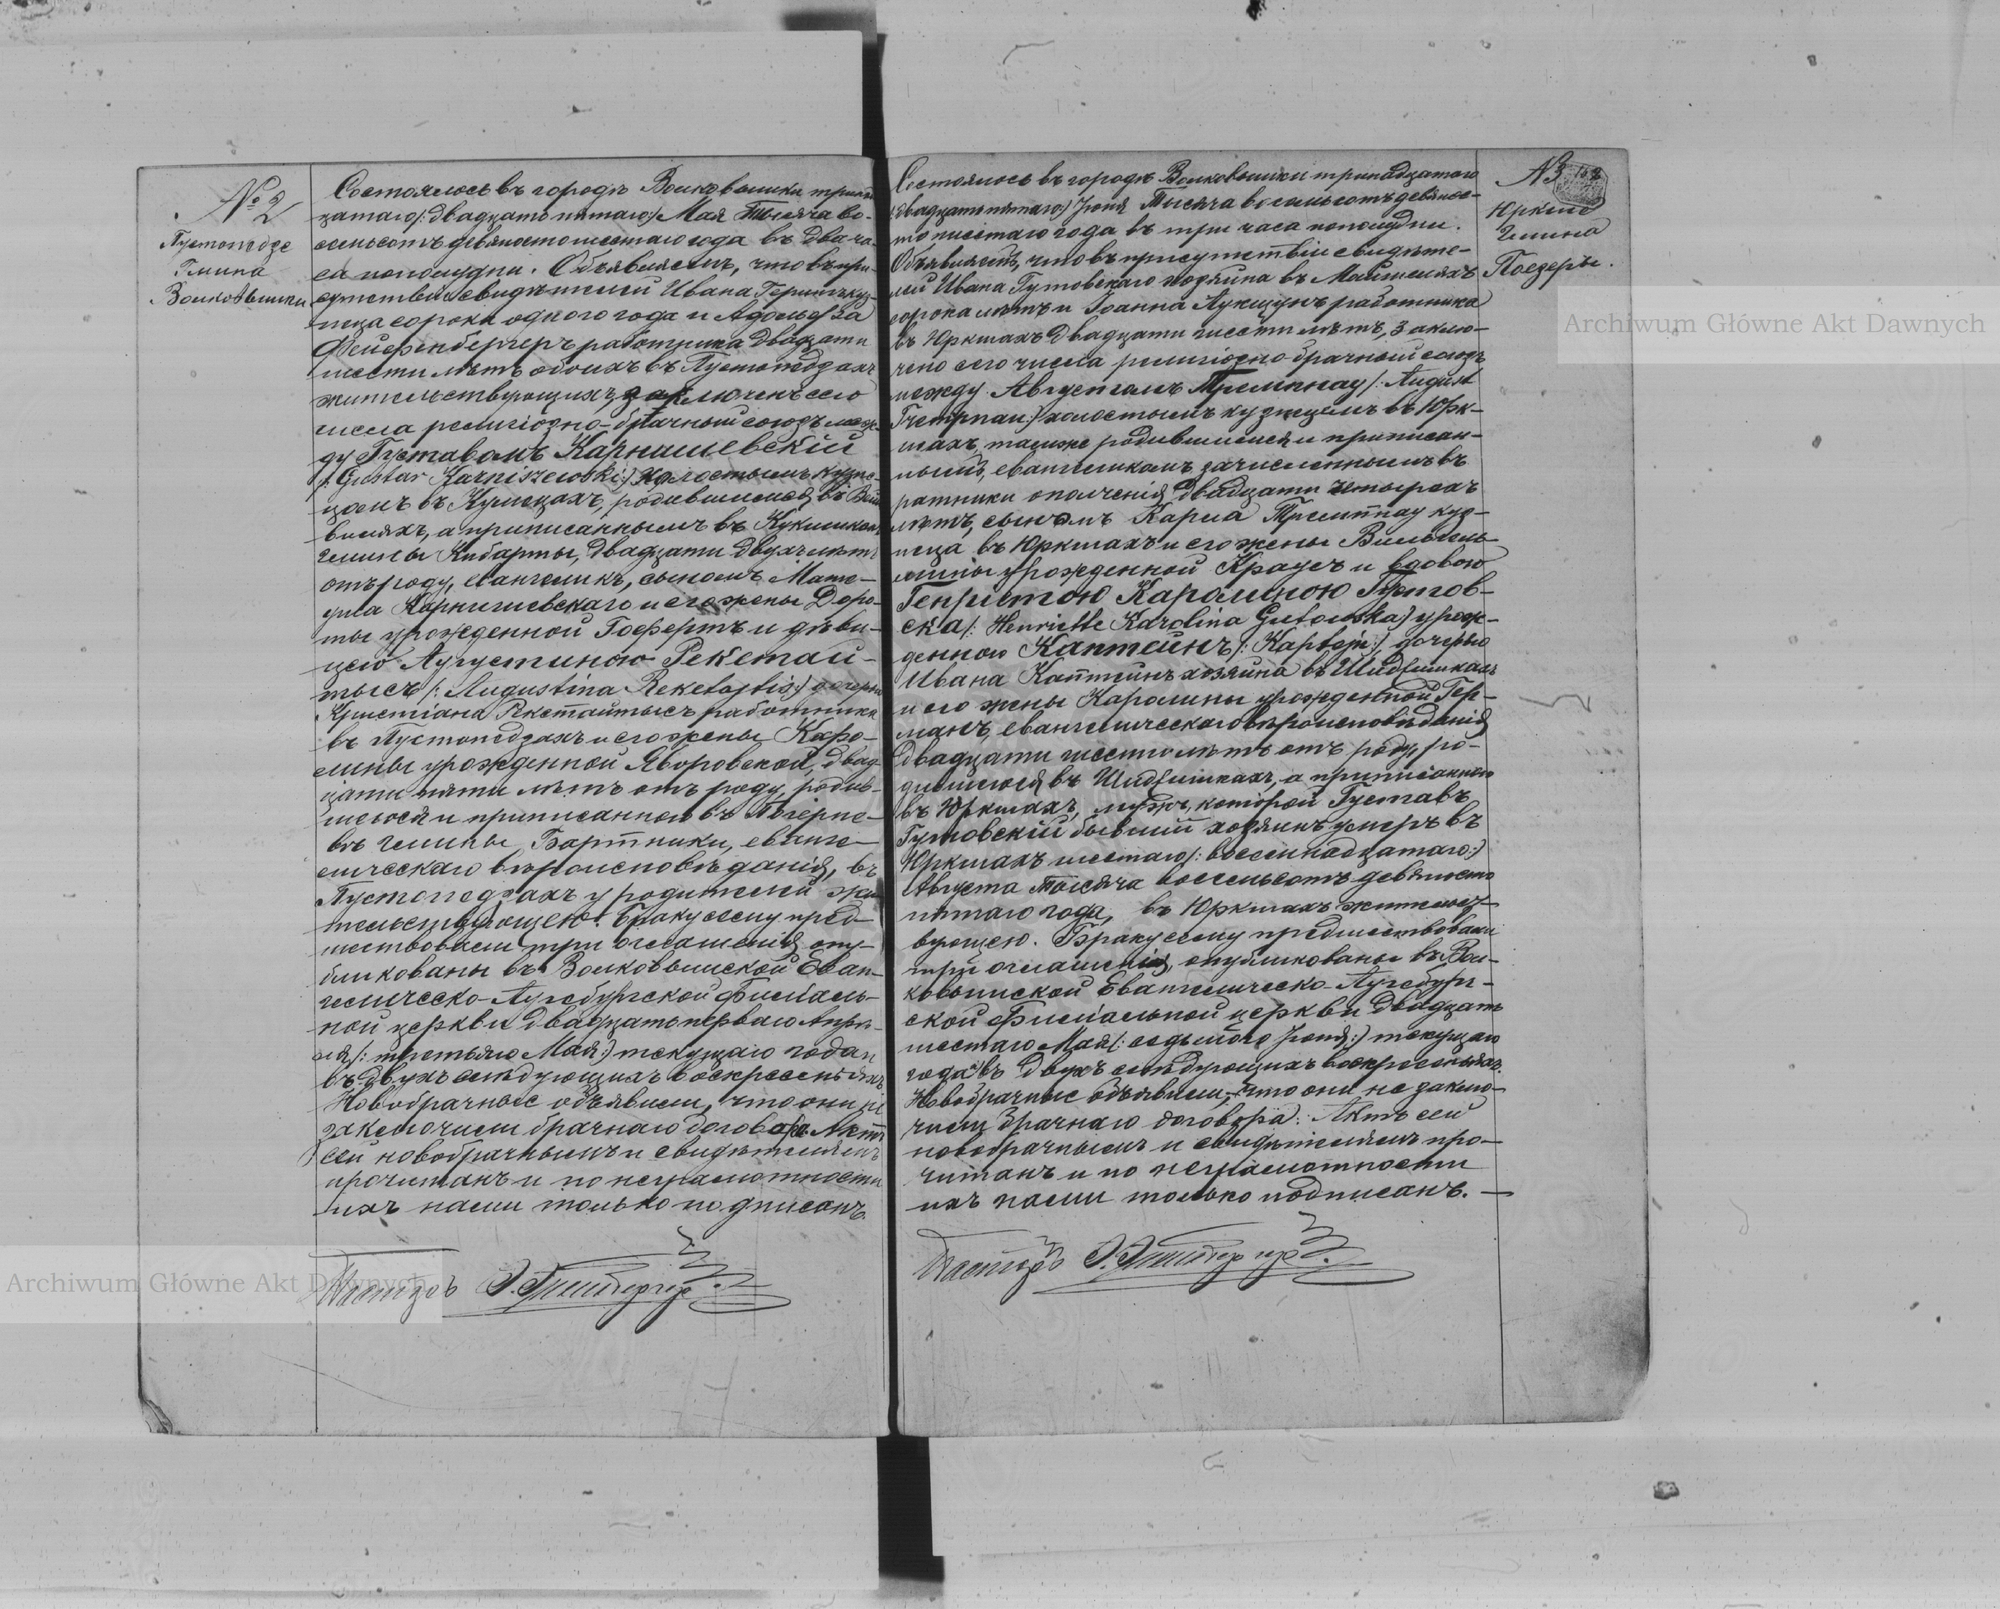 № 2
Пустопедзе
Гмина
Волковышки
Состоялось въ городѣ Волковышки тринад-
цатаго /: двадцать пятаго :/ Мая Тысяча во-
семьсотъ девяносто шестаго года въ два ча-
са пополудни. Объявляемъ, что въ при-
сутствіи свидѣтелей Ивана куз-
неца сорока одного года и Адольфа
работника двадцати
шести лѣтъ обоихъ въ Пустопедзахъ
жительствующихъ, заключенъ сего
числа религіозно-брачный союзъ меж-
ду Густавомъ Карнишевскій
/: Gustav Karniszewski :/ холостымъ кузне-
цомъ въ родившимся въ
а приписаннымъ въ
гмины Кибарты, двадцати двухъ лѣтъ
отъ роду, евангеликъ, сыномъ Мате-
уша Карнишевскаго и его жены Доро-
ты урожденной Гофертъ и дѣви-
цею Аугустиною Рекетай-
тысъ /: Augustina Reketajtis :/ дочерью
Кристіана Рекетайтысъ работника
въ Пустопедзахъ и его жены Каро-
лины урожденной Яворовской, двад-
цати пяти лѣтъ отъ роду, родив-
шеюся и приписанною въ
вѣ гмины Бартники, еванге-
лическаго вѣроисповѣданія, въ
Пустопедзахъ у родителей жи-
тельствующею. Браку сему пред-
шествовали три оглашенія опу-
бликованы въ Волковышской Еван-
гелическо-Аугсбургской Филіаль-
ной церкви двадцать перваго Апрѣ-
ля /: третьяго Мая :/ текущаго года и
въ двухъ слѣдующихъ воскресеньяхъ
Новобрачные объявили, что они не
заключили брачнаго договора. Актъ
сей новобрачнымъ и свидѣтелямъ
прочитанъ и по неграмотности
ихъ нами только подписанъ.
Пасторъ
№ 3
Юркше
Гмина
Поезеры.
Состоялось въ городѣ Волковышки тринадцатаго
/: двадцать пятаго :/ Іюня Тысяча восемьсотъ девянос-
то шестаго года въ три часа пополудни.
Объявляемъ, что въ присутствіи свидѣте-
лей Ивана Гутовскаго хозяина въ
сорока лѣтъ и Іоанна работника
въ Юркшахъ двадцати шести лѣтъ, заклю-
чено сего числа религіозно брачный союзъ
между Августомъ Тремпнау /: August
холостымъ кузнецомъ въ Юрк-
шахъ, тамже родившимся и приписан-
нымъ, евангеликомъ зачисленнымъ въ
ратники ополченія двадцати четырехъ
лѣтъ, сыномъ Карла Тремпнау куз-
неца въ Юркшахъ и его жены Вильгель-
мины урожденной Краузъ и вдовою
Генріетою Каролиною Гутов-
ска /: Henriette Karolina Gutowska :/ урож-
денною Каптейнъ /: Kaptejn :/, дочерью
Ивана Каптейнъ хозяина въ
и его жены Каролины урожденной Гер-
манъ, евангелическаго вѣроисповѣданія
двадцати шести лѣтъ отъ роду, ро-
дившеюся въ а приписанною
въ Юркшахъ, мужъ которой Густавъ
Гутовскій бывшій хозяинъ умеръ въ
Юркшахъ шестаго /: восемнадцатаго :/
Августа Тысяча восемьсотъ девяносто
пятаго года, въ Юркшахъ жительст-
вующею. Браку сему предшествовали
три оглашенія, опубликованы въ Вол-
ковышской Евангелическо-Аугсбург-
ской Филіальной церкви двадцать
шестаго Мая /: седьмого Іюня :/ текущаго
года и въ двухъ слѣдующихъ воскресеньяхъ.
Новобрачные объявили, что они не заклю-
чили брачнаго договора. Актъ сей
новобрачнымъ и свидѣтелямъ про-
читанъ и по неграмотности
ихъ нами только подписанъ. —
Пасторъ
Archiwum Główne Akt Dawnych
Archiwum Główne Akt Dawnych